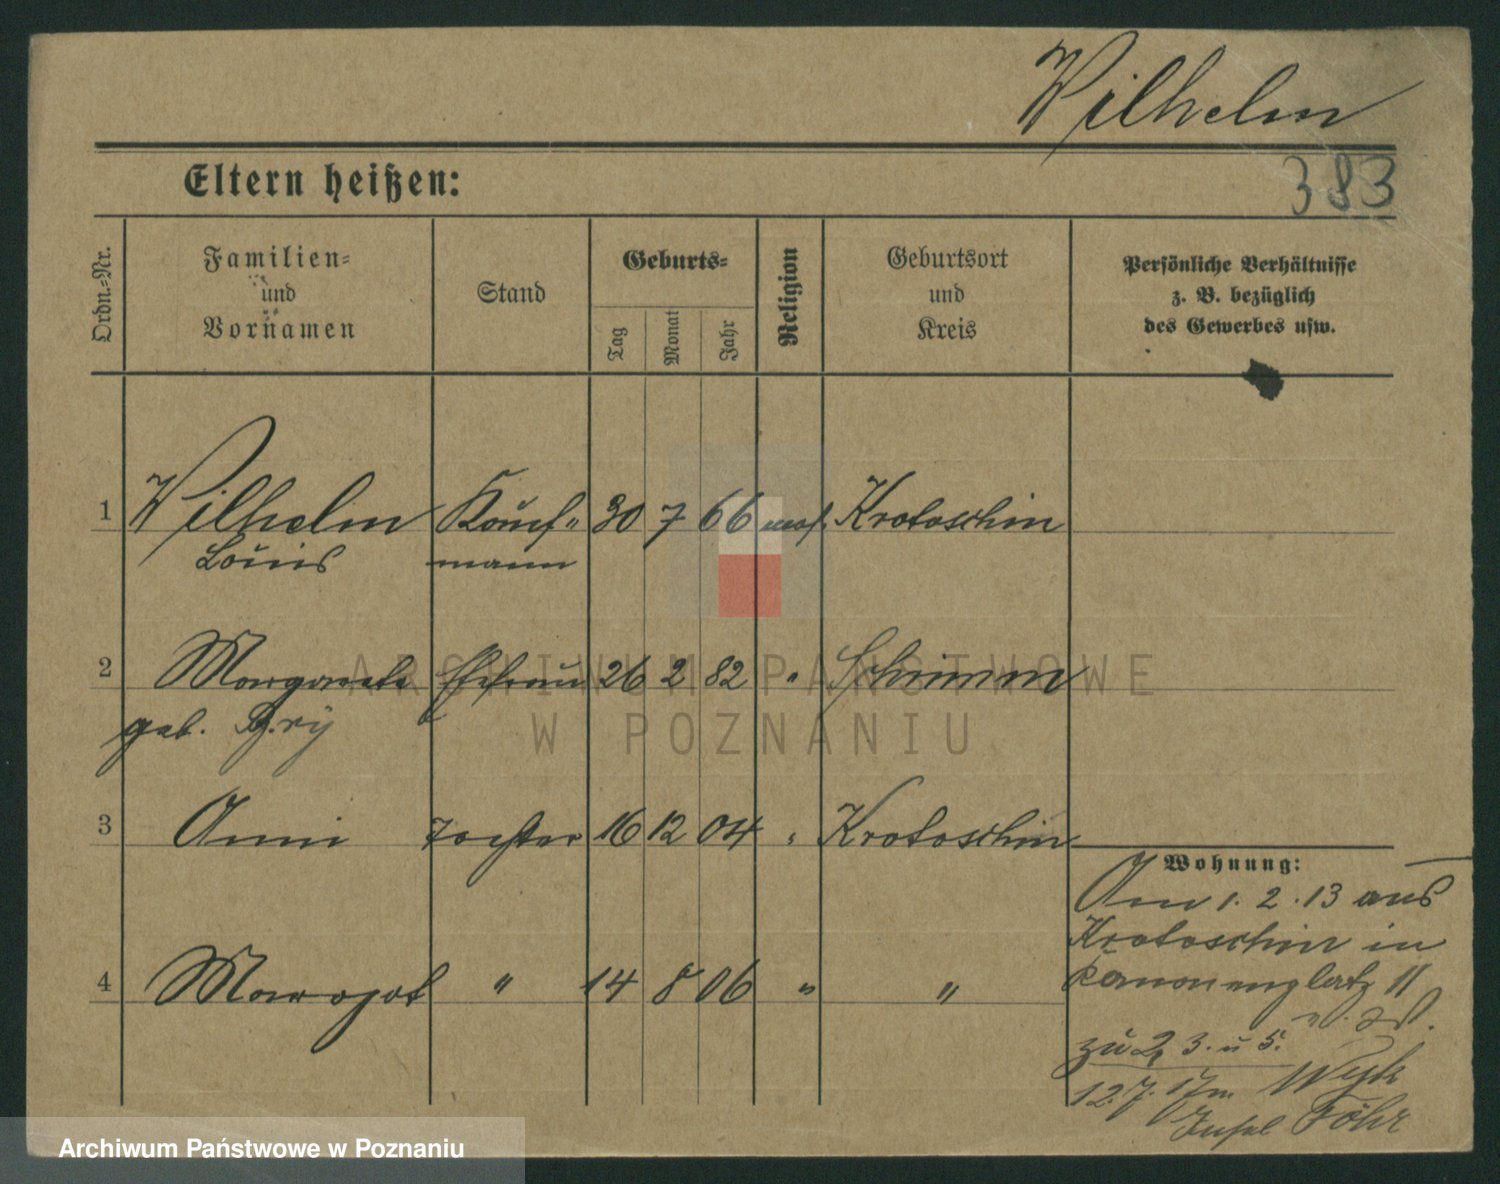 Wilhelm
383
Eltern heißen:
Ordn.-Nr.
Familien-
und
Vornamen
Stand
Geburts-
Tag
Monat
Jahr
Religion
Geburtsort
und
Kreis
Persönliche Verhältnisse
z. B. bezüglich
des Gewerbes usw.
1 Wilhelm Kauf- 30 7 66 mos. Krotoschin
Louis mann
2 Margarete Ehefrau 26 2 82 " Schrimm
geb.
3 Anni Tochter 16 12 04 " Krotoschin
Wohnung:
Am 1. 2. 13 aus
Krotoschin in
Kanonenplatz 11
4 Margot " 14 8 06 " "
zu 2, 3. u 5.
12. 7. 17 Wyk
Insel Föhr
ARCHIWUM PAŃSTWOWE
W POZNANIU
Archiwum Państwowe w Poznaniu